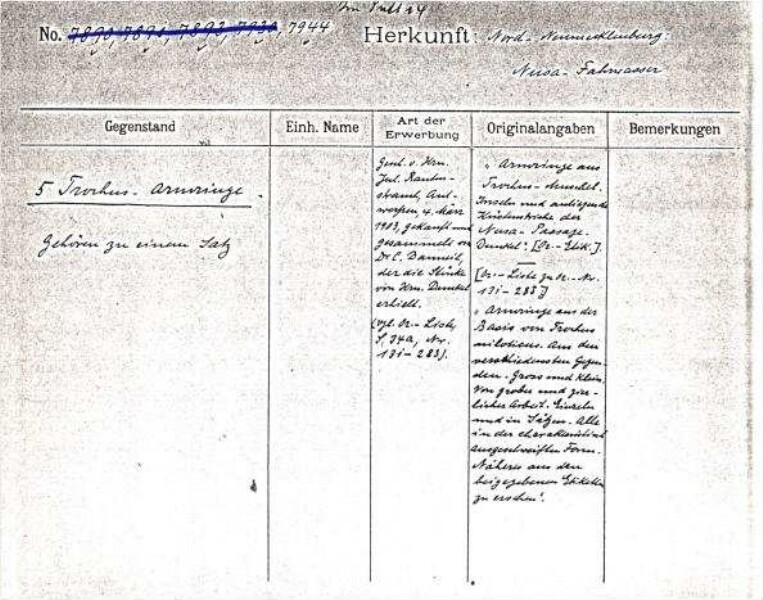 Im Pult 24
No. 7890, 7891, 7893, 7930, 7944 Herkunft: Nord-Neumecklenburg:
Nusa-Fahrwasser
Gegenstand
Einh. Name
Art der
Erwerbung
Originalangaben
Bemerkungen
5 Trochus-Armringe.
Gehören zu einem Satz
Gesch. v. Hrn.
Jul. Rauten-
strauch, Ant-
werpen, 4. März
1903, gekauft und
gesammelt von
Dr. C. Danneil,
der die Stücke
von Hrn. Dunkel
erhielt.
(vgl. Or.-Liste,
S. 34a, Nr.
13i-283).
"Armringe aus
Trochus-Muschel.
Inseln und anliegende
Küstenstriche der
Nusa-Passage.
Dunkel". [Or.-Etik.].
[Or.-Liste zu Or.-Nr.
13i-283]
"Armringe aus der
Basis von Trochus
niloticus. Aus den
verschiedensten Gegen-
den. Gross und klein,
von grober und zier-
licher Arbeit. Einzeln
und in Sätzen. Alle
in der charakteristisch
ausgeschweiften Form.
Näheres aus den
beigegebenen Etiketten
zu ersehen".